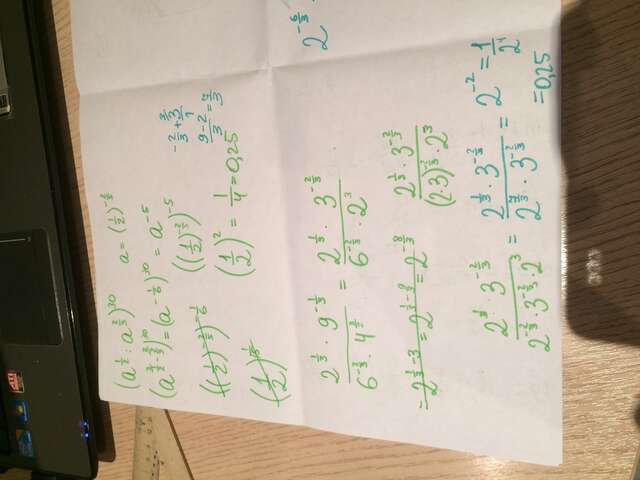 (a^{1/2} : a^{2/3})^{30}   a = (1/2)^{-2/5}
(a^{3/2 - 2/3})^{30} = (a^{-1/6})^{30} = a^{-5}
((1/2)^{-2/5})^{-1/6}   ((1/2)^{-2/5})^{-5}
(1/2)^{1/15}   (1/2)^2 = 1/4 = 0,25
-2/3 + 3/1
(9-2)/3 = 7/3
(2^{1/3} · 9^{-1/3})/(6^{-2/3} · 4^{3/2}) = (2^{1/3} · 3^{-2/3})/(6^{-2/3} · 2^3)
2^{-6/3}
= 2^{1/3 - 3} = 2^{1/3 - 9/3} = 2^{-8/3}   (2^{1/3} · 3^{-2/3})/((2·3)^{-2/3} · 2^3)
(2^{1/3} · 3^{-2/3})/(2^{-2/3} · 3^{-2/3} · 2^3) = (2^{1/3} · 3^{-2/3})/(2^{7/3} · 3^{-2/3}) = 2^{-2} = 1/2^4
= 0,25